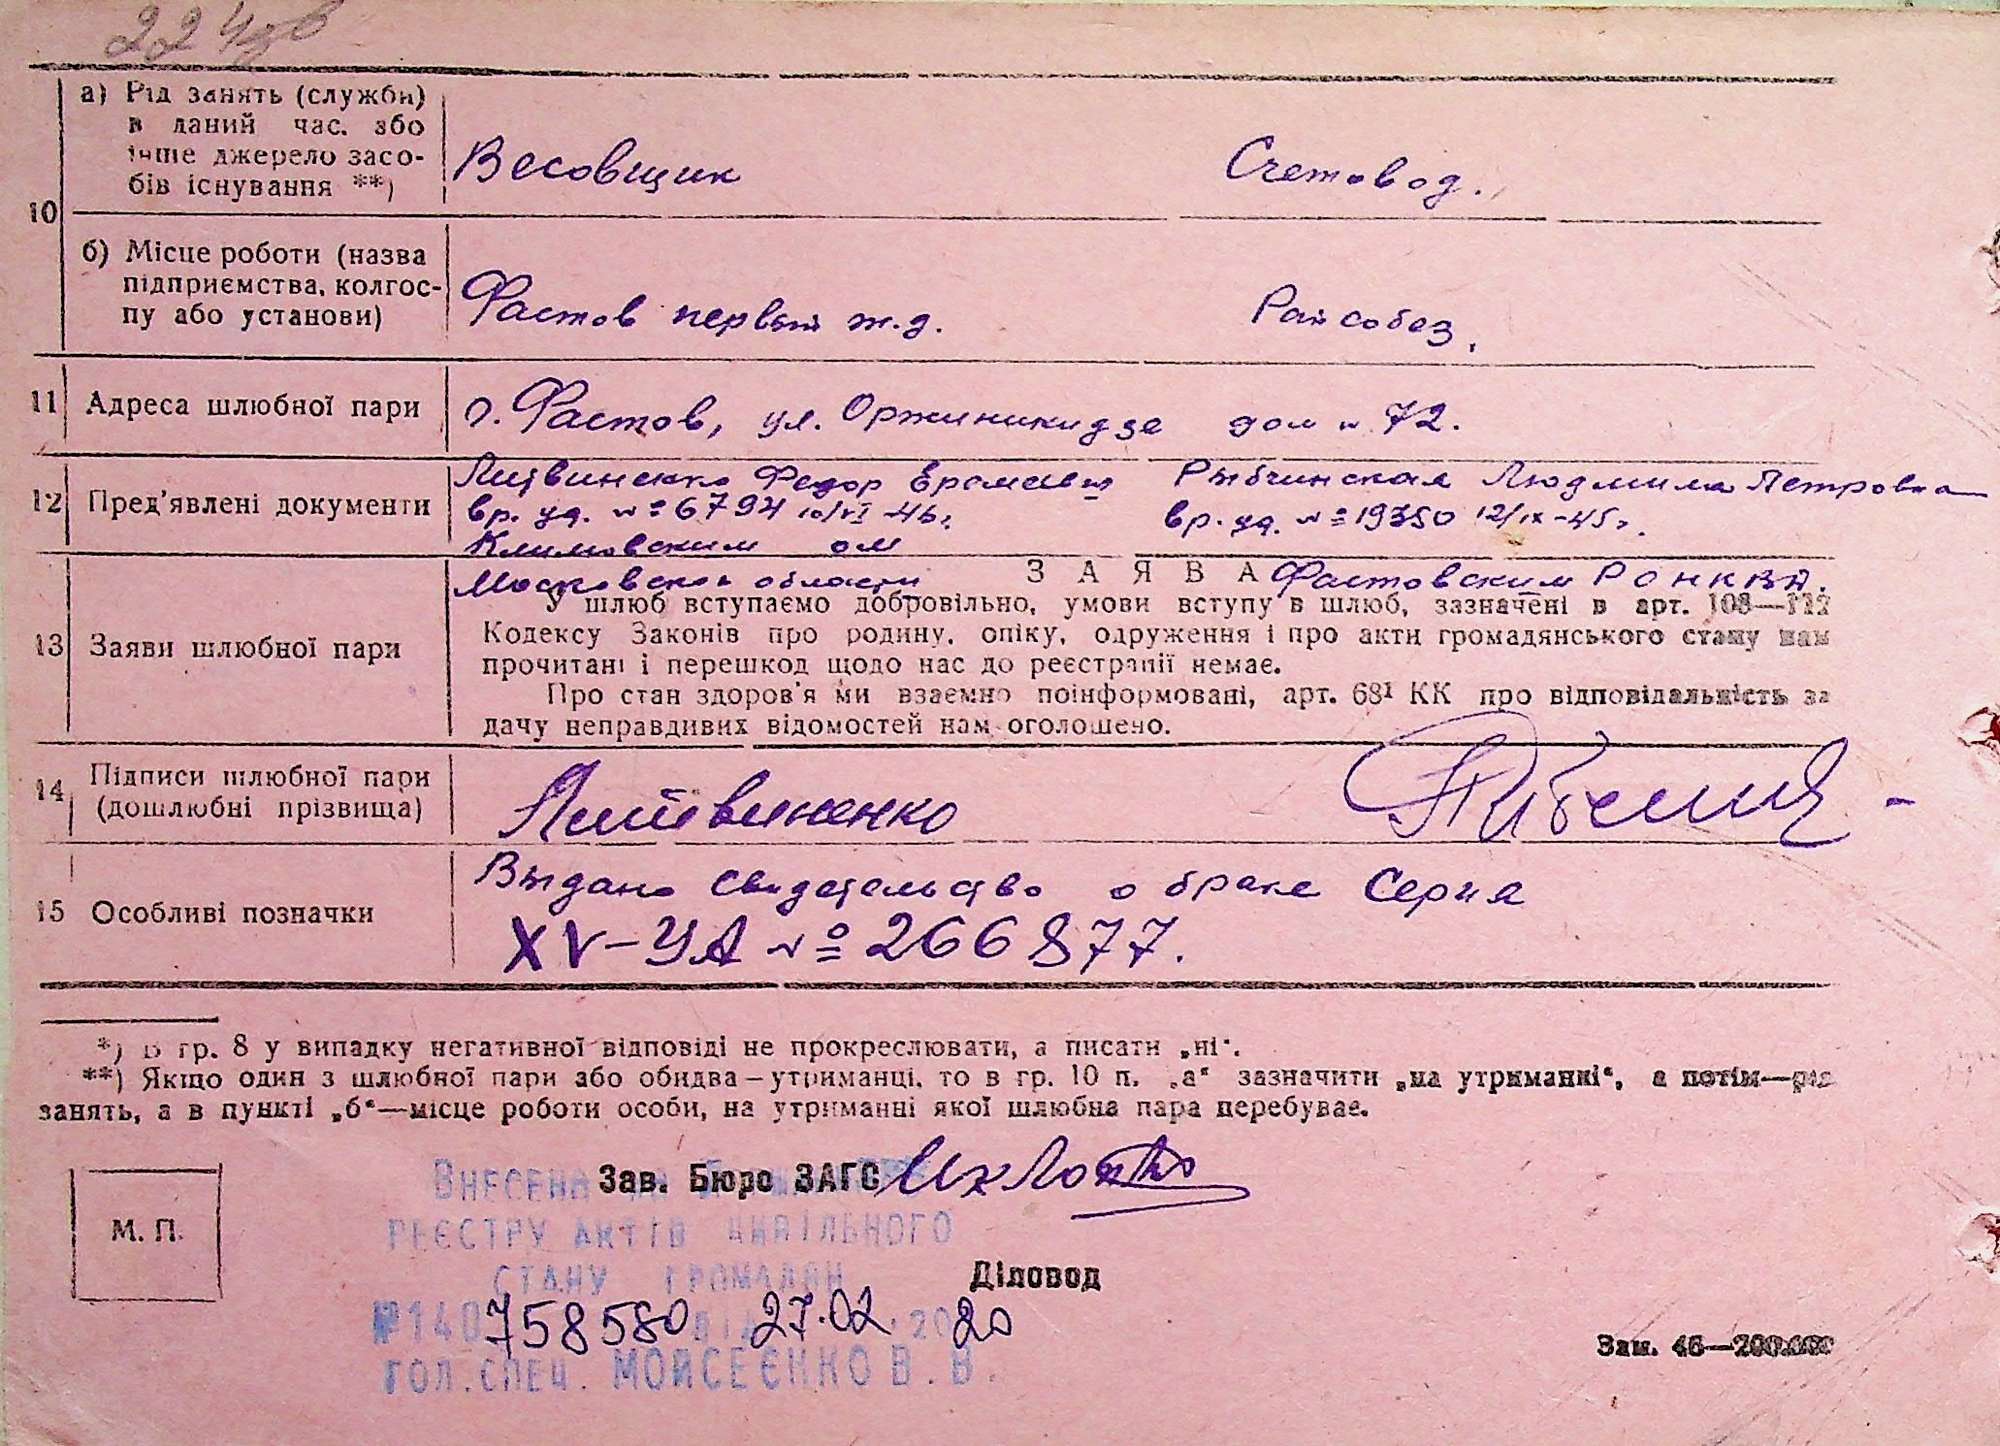 а) Рід занять (служби)
в даний час, або
інше джерело засо-
бів існування **)
Весовщик
Счетовод.
10
б) Місце роботи (назва
підприємства, колгос-
пу або установи)
Фастов первый ж.д.
Райсобез.
11
Адреса шлюбної пари
г. Фастов, ул. Оржиникидзе дом № 72.
12
Пред'явлені документи
Литвиненко Федор
Рыбчинская Людмила Петровна
вр. уд. № 6794 10/VI-46г.
вр. уд. № 19350 12/IX-45г.
Климовским ом
Московской области
Фастовским РО НКВД.
З А Я В А
13
Заяви шлюбної пари
У шлюб вступаємо добровільно, умови вступу в шлюб, зазначені в арт. 108—112
Кодексу Законів про родину, опіку, одруження і про акти громадянського стану нам
прочитані і перешкод щодо нас до реєстрації немає.
Про стан здоров'я ми взаємно поінформовані, арт. 68¹ КК про відповідальність за
дачу неправдивих відомостей нам оголошено.
14
Підписи шлюбної пари
(дошлюбні прізвища)
Литвиненко
15
Особливі позначки
Выдано свидетельство о браке Серия
XV-УА № 266877.
*) В гр. 8 у випадку негативної відповіді не прокреслювати, а писати „ні“.
**) Якщо один з шлюбної пари або обидва—утриманці, то в гр. 10 п. „а“ зазначити „на утриманні“, а потім—рід
занять, а в пункті „б“—місце роботи особи, на утриманні якої шлюбна пара перебуває.
М. П.
Зав. Бюро ЗАГС
Внесено
реєстру актів цивільного
стану громадян
Діловод
№140758580 від 27.02.2020
гол.спец. Мойсеєнко В.В.
Зам. 46—200.000